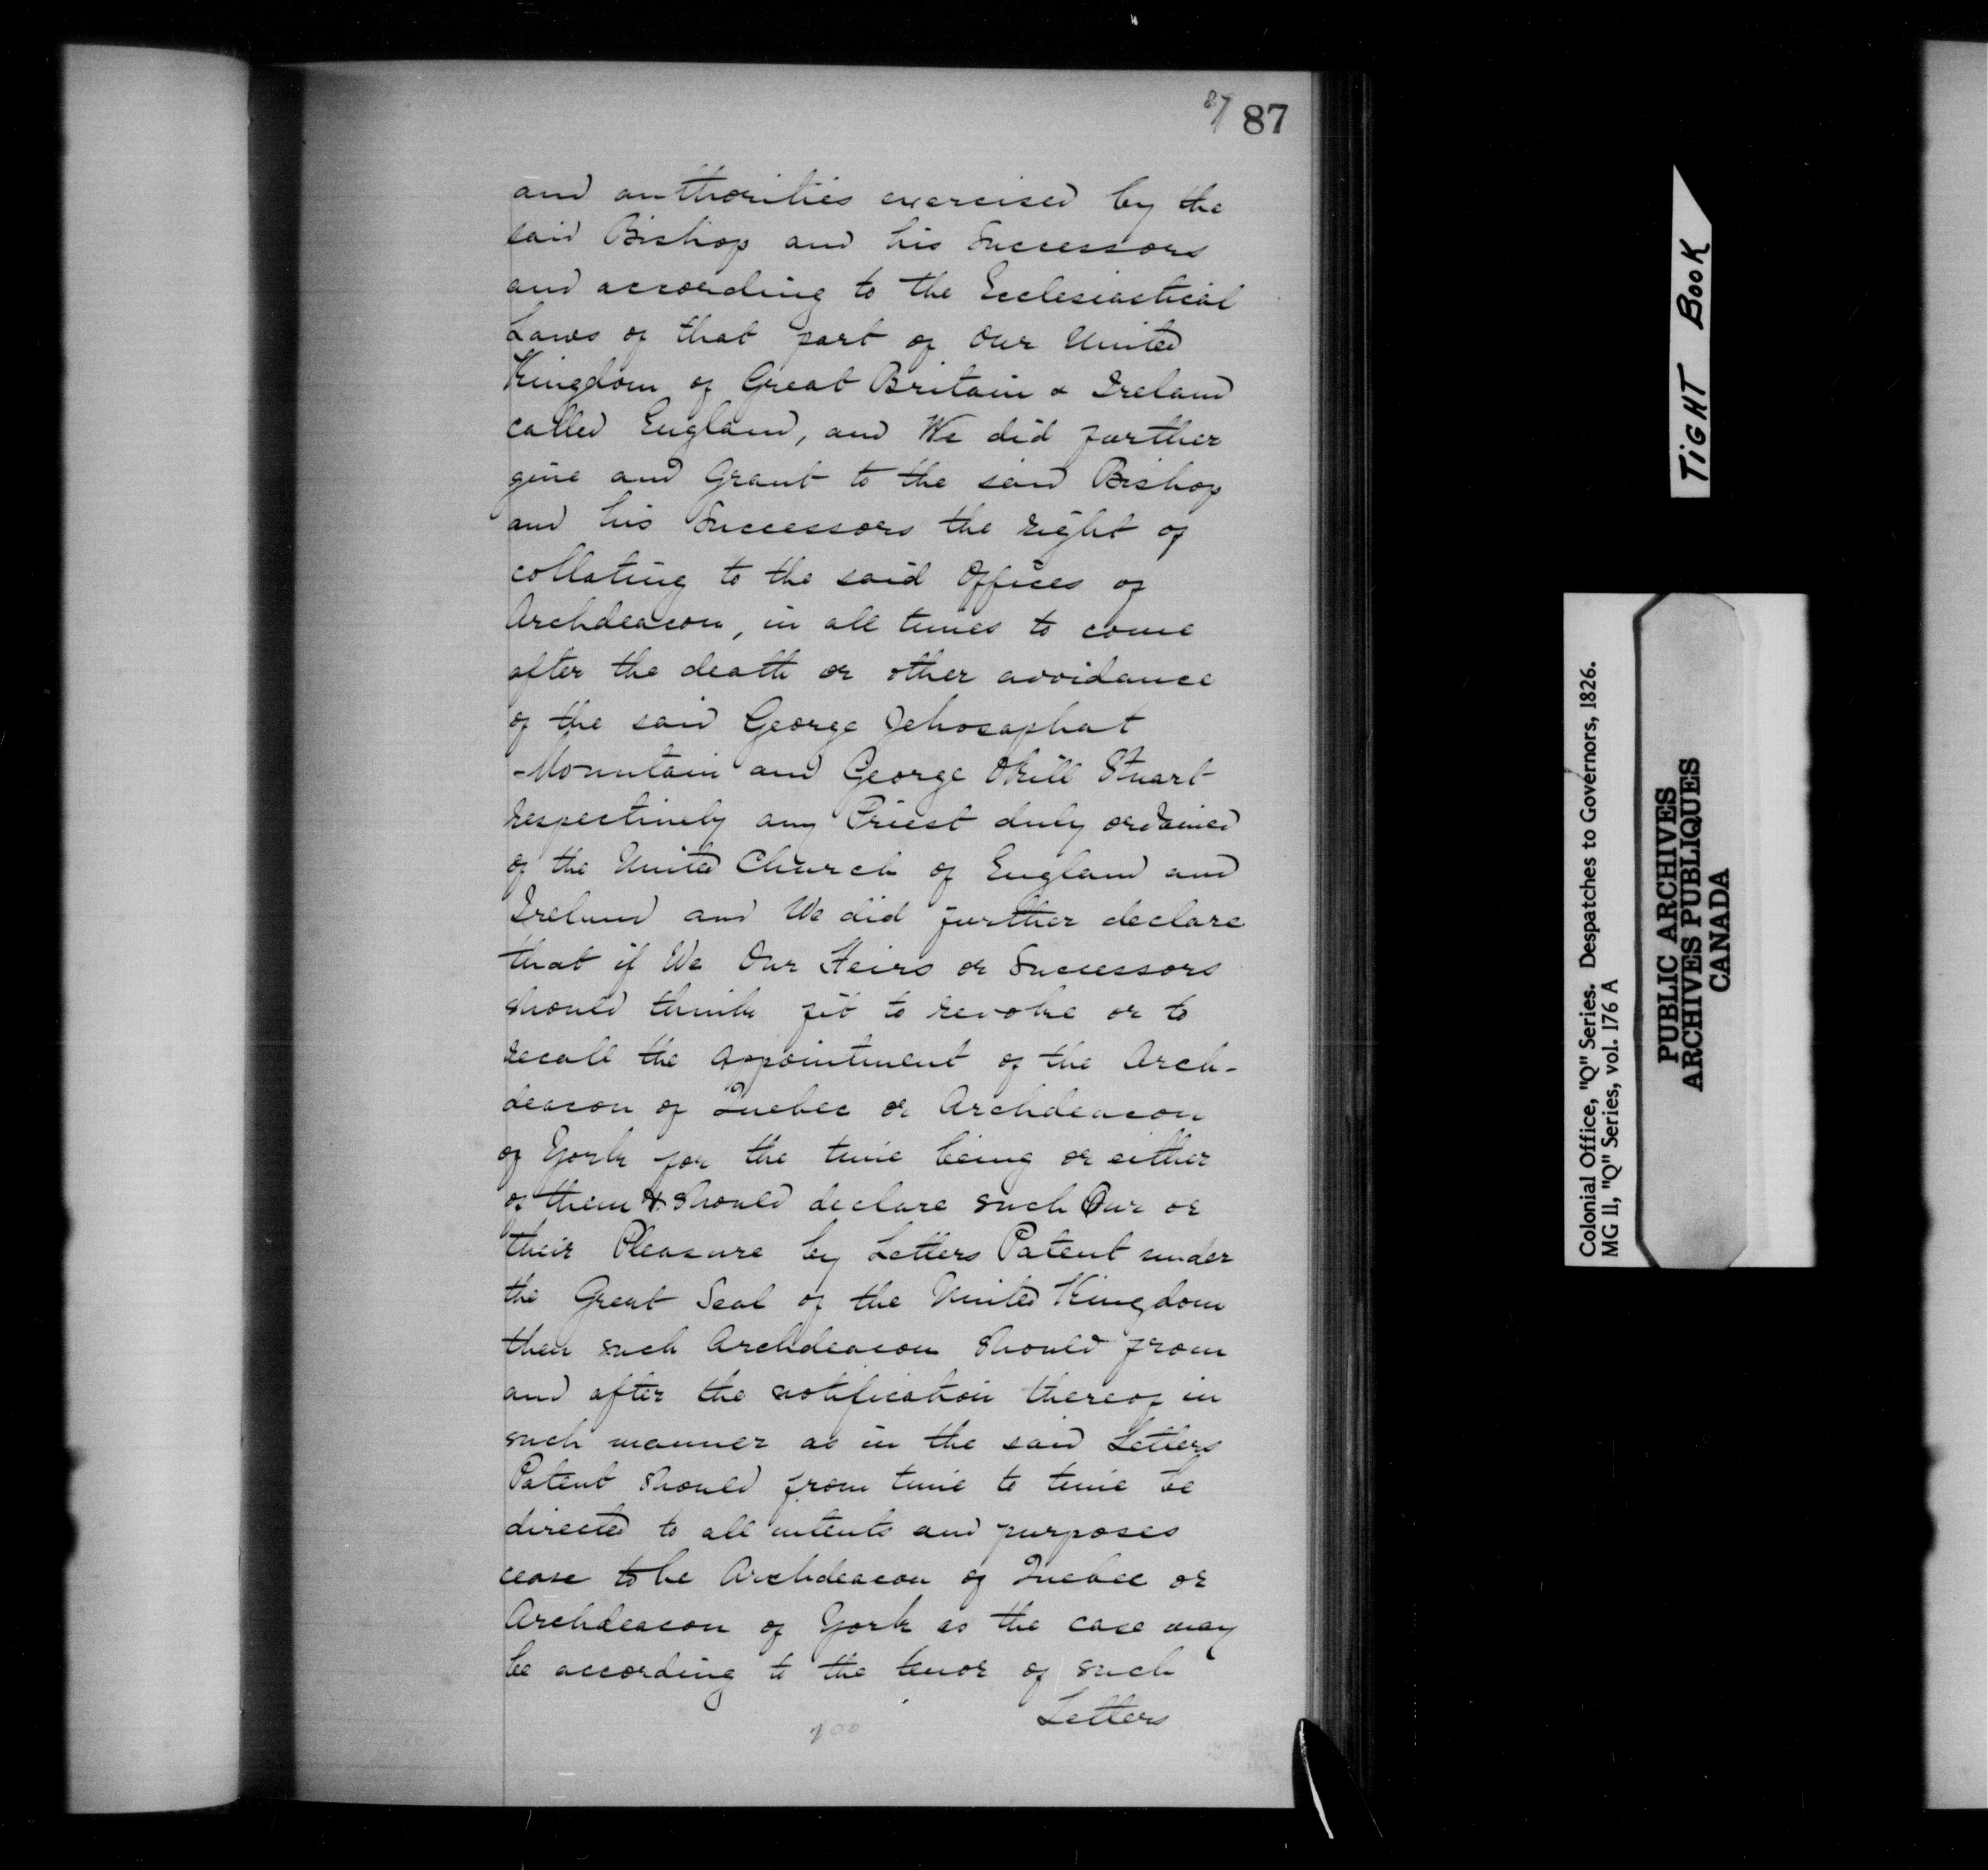 87 87
and authorities exercised by the
said Bishop and his Successors
and according to the Ecclesiastical
Laws of that part of Our United
Kingdom of Great Britain & Ireland
called England, and We did further
give and Grant to the said Bishop
and his Successors the right of
collating to the said Offices of
Archdeacon, in all times to come
after the death or other avoidance
of the said George Jehosaphat
-Mountain and George Okill Stuart
respectively any Priest duly ordained
of the United Church of England and
Ireland and We did further declare
that if We Our Heirs or Successors
should think fit to revoke or to
recall the Appointment of the Arch-
deacon of Quebec or Archdeacon
of York for the time being or either
of them & should declare such Our or
their Pleasure by Letters Patent under
the Great Seal of the United Kingdom
then such Archdeacon should from
and after the notification thereof in
such manner as in the said Letters
Patent should from time to time be
directed to all intents and purposes
cease to be Archdeacon of Quebec or
Archdeacon of York as the case may
be according to the tenor of such
Letters
100
TIGHT BOOK
Colonial Office, "Q" Series. Despatches to Governors, 1826.
MG 11, "Q" Series, vol. 176 A
PUBLIC ARCHIVES
ARCHIVES PUBLIQUES
CANADA